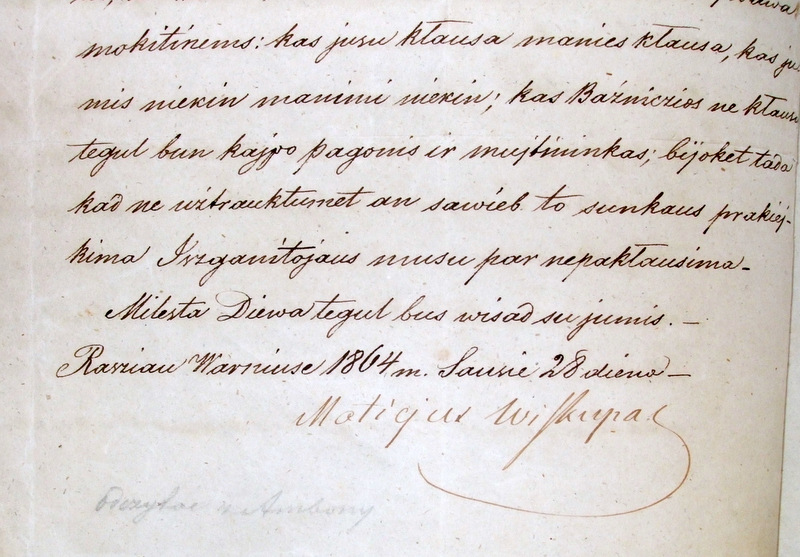 mokitinems: kas jusu kłausa manies kłausa, kas ju
mis niekin manimi niekin; kas Baźniczios ne kłausa
tegul bun kajpo pagonis ir mujtininkas; bijoket tada
kad ne użtrauktumet an sawieb to sunkaus prakiej-
kima Iszganitojaus musu par nepakłausima_
Milesta Diewa tegul bus wisad su jumis. _
Rasziau Warniuse 1864 m. Sausie 28 dieno _
Motiejus Wiskupas
Odczytac z Ambony